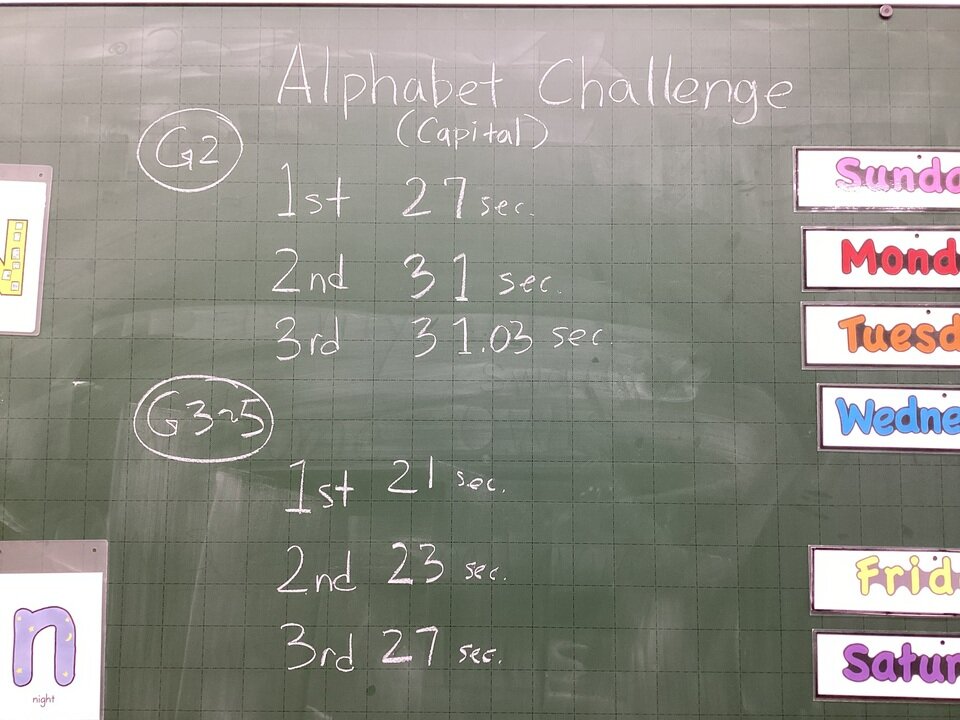 Alphabet Challenge
(Capital)
G2
1st 27 sec.
2nd 31 sec.
3rd 31.03 sec.
G3~5
1st 21 sec.
2nd 23 sec.
3rd 27 sec.
Sunda
Mond
Tuesd
Wedne
Frid
Satur
N
n
night